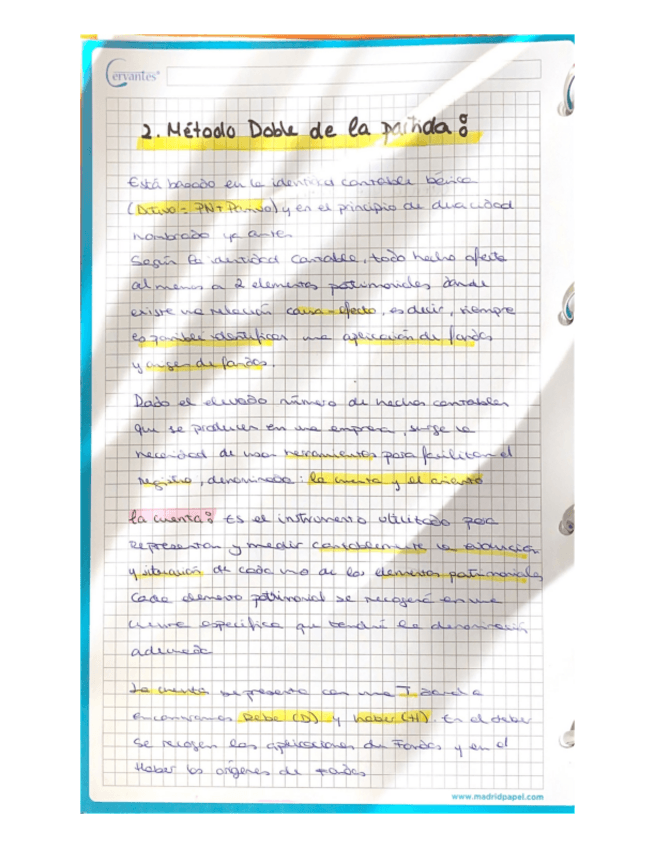 Cervantes
2. Método Doble de la partida:
Está basado en la identidad contable básica
(Activo = PN + Pasivo) y en el principio de dualidad
nombrado ya antes.
Según la identidad contable, todo hecho afecta
al menos a 2 elementos patrimoniales donde
existe una relación causa-efecto, es decir, siempre
es posible identificar una aplicación de fondos
y origen de fondos.
Dado el elevado número de hechos contables
que se producen en una empresa, surge la
necesidad de usar herramientas para facilitar el
registro, denominada: la cuenta y el asiento
la cuenta: Es el instrumento utilizado para
representar y medir contablemente la evolución
y situación de cada uno de los elementos patrimoniales
Cada elemento patrimonial se recogerá en una
cuenta específica que tendrá la denominación
adecuada
La cuenta se presenta con una T donde
encontramos Debe (D) y haber (H). En el debe
se recogen las aplicaciones de Fondos y en el
Haber los orígenes de fondos
www.madridpapel.com